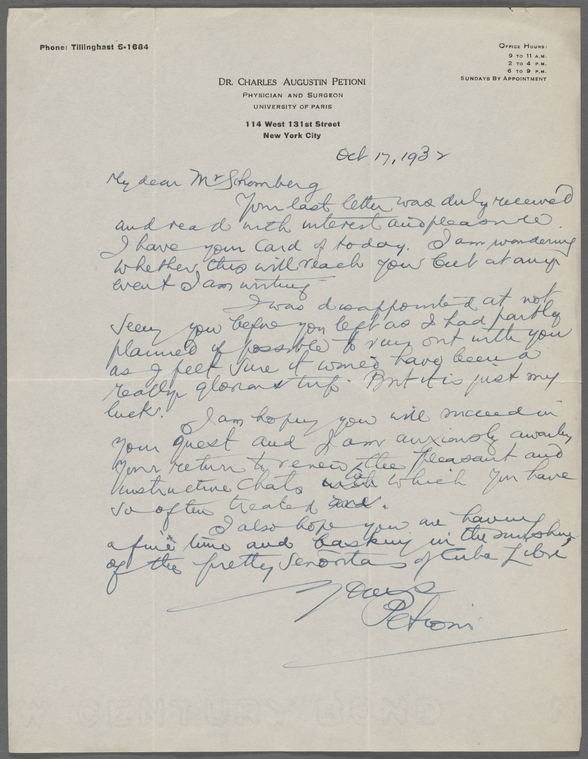 Phone: Tillinghast 5-1684
OFFICE HOURS:
9 TO 11 A.M.
2 TO 4 P.M.
6 TO 9 P.M.
SUNDAYS BY APPOINTMENT
DR. CHARLES AUGUSTIN PETIONI
PHYSICIAN AND SURGEON
UNIVERSITY OF PARIS
114 West 131st Street
New York City
Oct 17, 1932
My dear Mr Schomberg
Your last letter was duly received
and read with interest and pleasure.
I have your card of today. I am wondering
whether this will reach you but at any
event I am writing
I was disappointed at not
seeing you before you left as I had partly
planned if possible to run out with you
as I felt sure it would have been a
really glorious trip. But it is just my
luck.
I am hoping you will succeed in
your quest and I am anxiously awaiting
your return to renew the pleasant and
instructive chats to which you have
so often treated me.
I also hope you are having
a fine time and basking in the sunshine
of the pretty Señoritas of Cuba Libre
Yours
Petioni